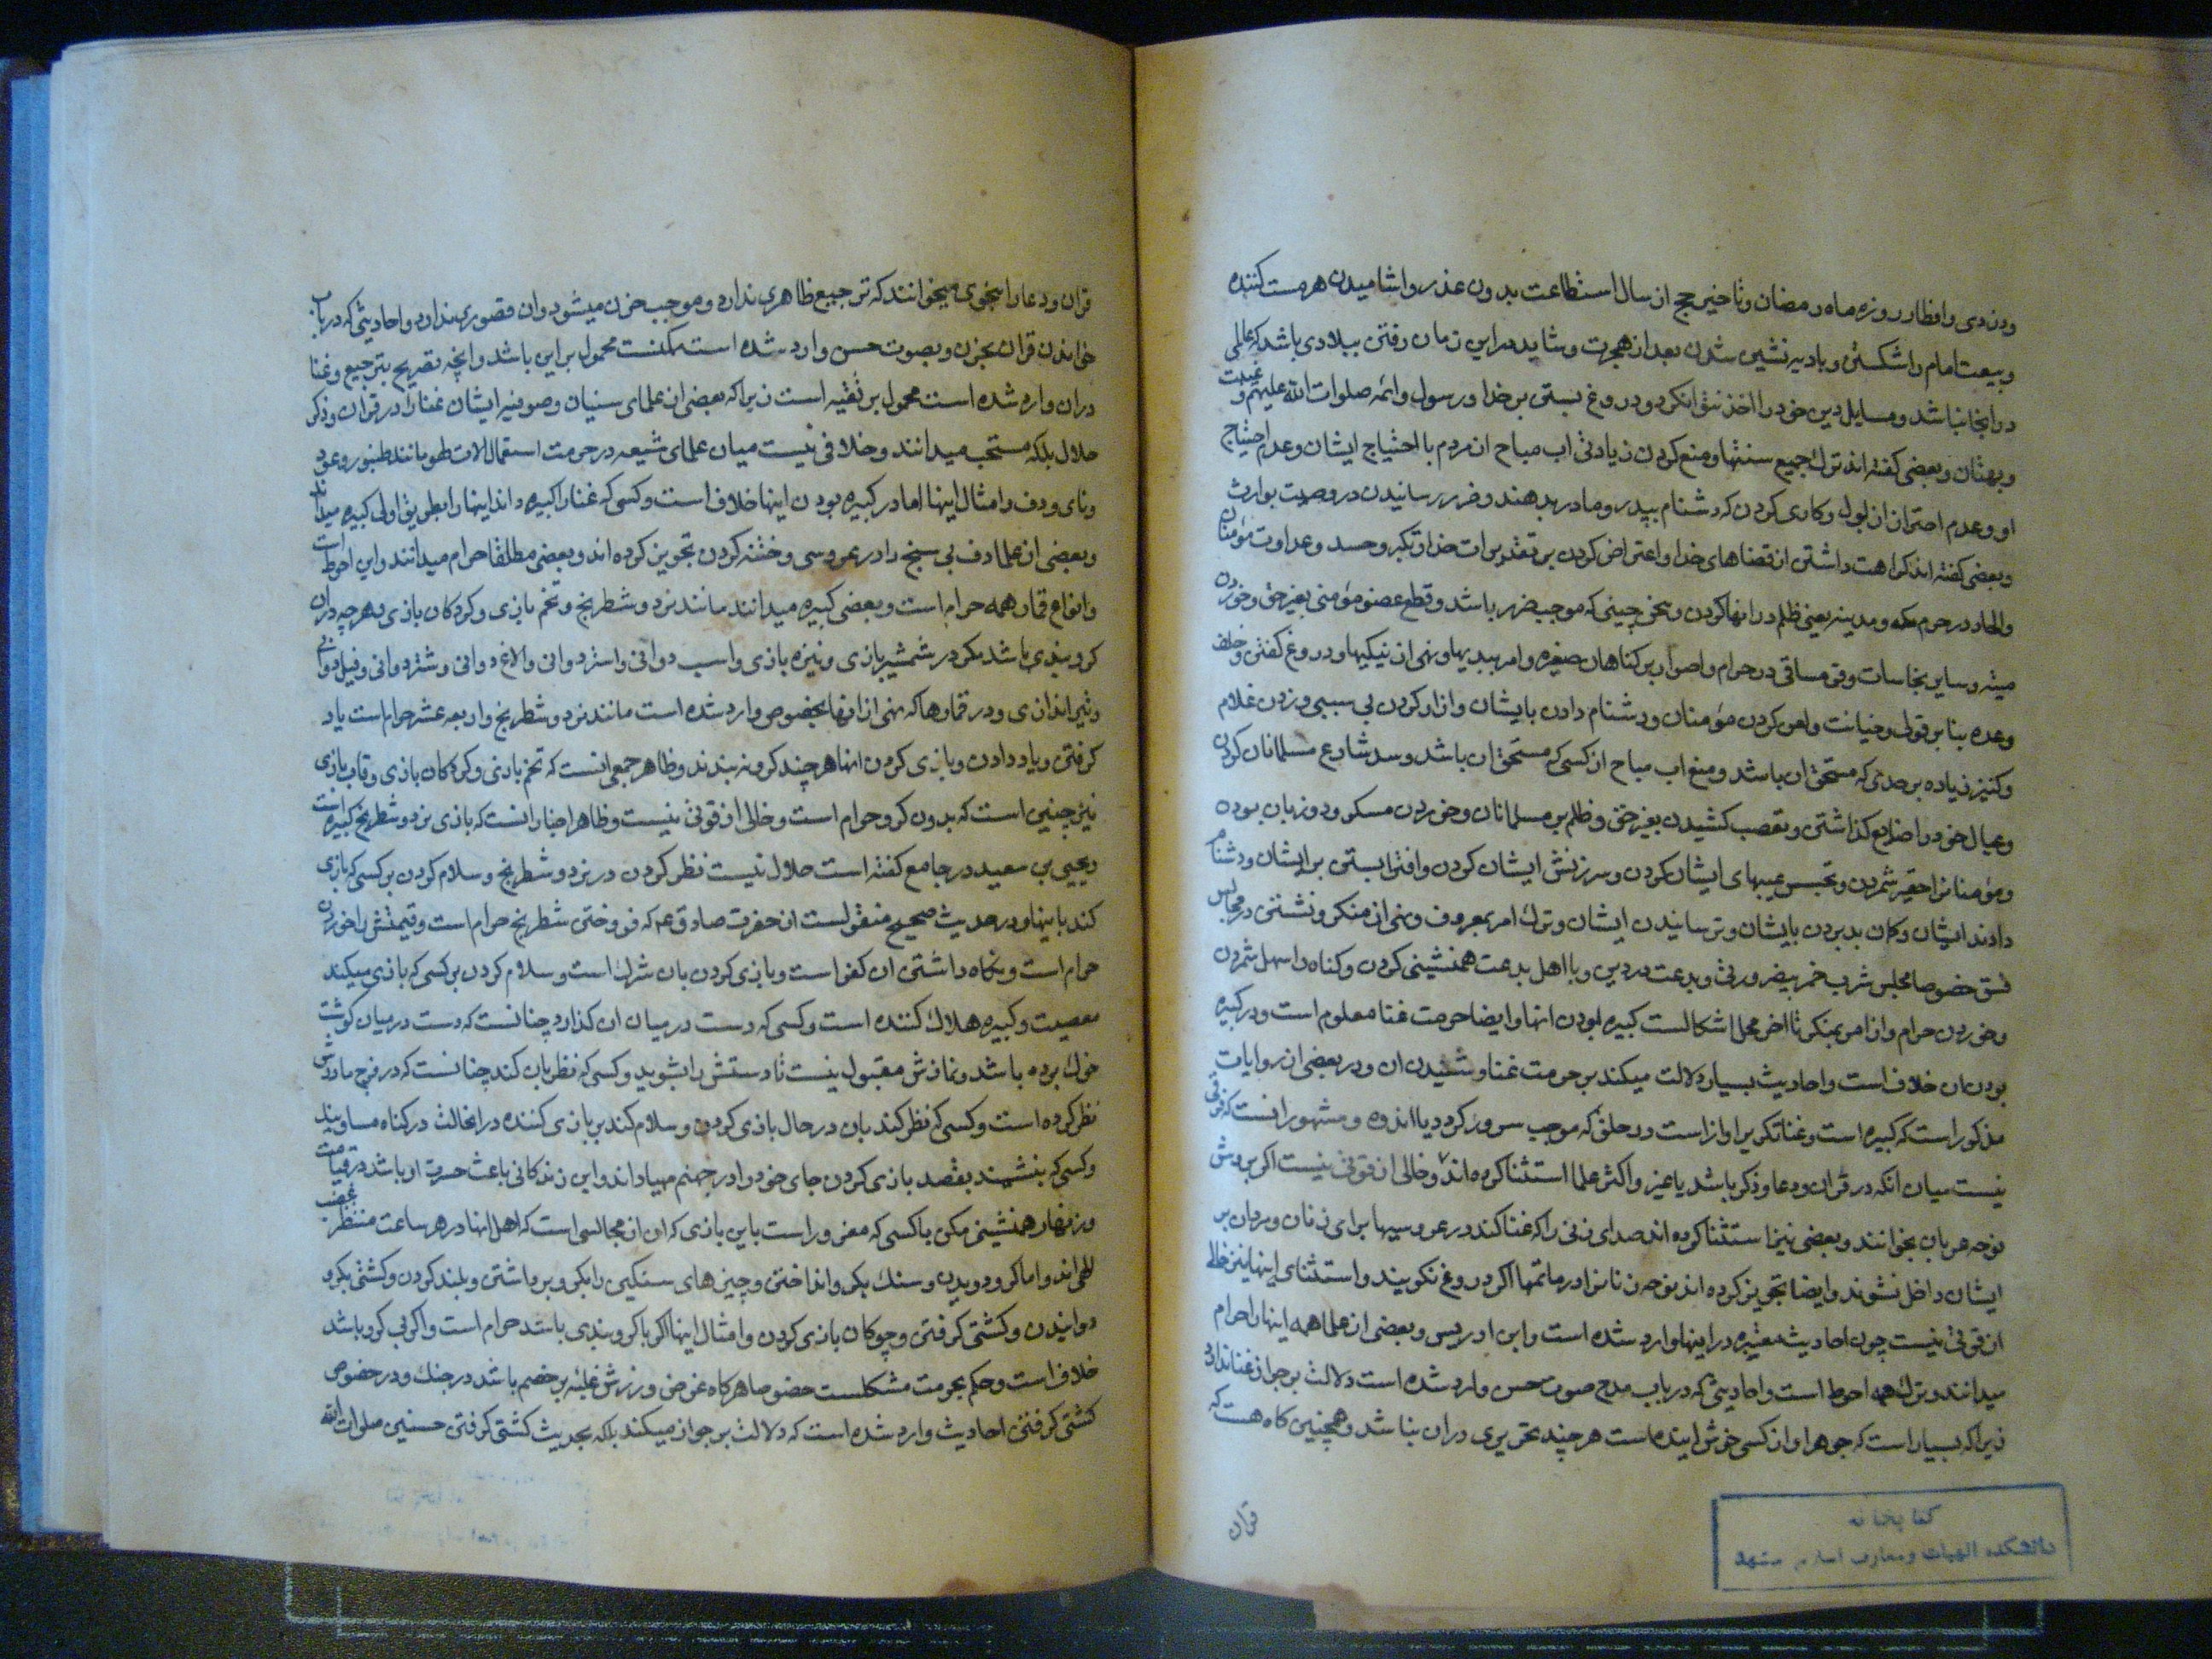 ودزدی وافطار روزه ماه رمضان وتاخیر حج از سال استطاعت بدون عذر واشامیدن هر مست کننده
وبیعت امام را شکستن وبادیه نشین شدن بعد از هجرت وشاید در این زمان رفتن ببلادی باشد که عالمی
در انجا نباشد ومسایل دین خود را اخذ نتوانکرد ودروغ بستن بر خدا ورسول وائمه صلوات الله علیهم وغیبت
وبهتان وبعضی گفته اند ترک جمیع سنتها ومنع کردن زیادتی اب مباح از مردم با احتیاج ایشان وعدم احتیاج
او وعدم احتراز از بول وکاری کردن که دشنام بپدر ومادر بدهند وضرر رسانیدن در وصیت بوارث
وبعضی گفته اند کراهت داشتن از قضاهای خدا واعتراض کردن بر تقدیرات خدا وتکبر وحسد وعداوت مؤمنان
والحاد در حرم مکه ومدینه یعنی ظلم در انها کردن وسخن چینی که موجب ضرر باشد وقطع عضو مؤمنی بغیر حق وخوردن
میته وسایر نجاسات وقی مساقی در حرام واصرار بر کناهان صغیره وامر ببدیها ونهی از نیکیها ودروغ گفتن وخلف
وعده بنا بر قولی وخیانت ولعن کردن مؤمنان ودشنام دادن بایشان وازار کردن بی سببی وزدن غلام
وکنیز زیاده بر حدی که مستحق ان باشد ومنع اب مباح از کسی که مستحق ان باشد وسد شارع مسلمانان کردن
وعیال خود را ضایع کذاشتن وتعصب کشیدن بغیر حق وظلم بر مسلمانان وخوردن مسکر ودو زبان بودن
ومؤمنانرا حقیر شمردن وتجسس عیبهای ایشان کردن وسرزنش ایشان کردن وافترا بستن بر ایشان ودشنام
دادند ایشان وکمان بد بردن بایشان وترسانیدن ایشان وترک امر بمعروف ونهی از منکر ونشستن در مجالس
فسق خصوصا مجلس شرب خمر بیضرورتی وبدعت در دین وبا اهل بدعت همنشینی کردن وکناه را سهل شمردن
وخوردن حرام وازامر بمنکر تا اخر محل اشکالست کبیره بودن انها وایضا حرمت غنا معلوم است ودر کبیره
بودن ان خلاف است واحادیث بسیار دلالت میکند بر حرمت غنا وشنیدن ان ودر بعضی از روایات
مذکور است که کبیره است وغنا تکریر اواز است در حلق که موجب سرور کردد یا اندوه ومشهور انست که فرقی
نیست میان انکه در قران ودعا وذکر باشد یا غیر واکثر علما استثنا کرده اند وخالی از قوتی نیست اکر بروش
نوحه عربان بخوانند وبعضی نیز استثنا کرده اند صدای زنی را که غنا کند در عروسیها برای زنان ومردان بر
ایشان داخل نشوند وایضا تجویز کرده اند نوحه زنانرا در ماتمها اکر دروغ نکویند واستثنای اینها نیز خالی
از قوتی نیست چون احادیث معتبره در اینها وارد شده است وابن ادریس وبعضی از علما همه اینها را حرام
میدانند وترک همه احوط است واحادیثی که در باب مدح صوت حسن وارد شده است دلالت بر جواز غنا ندارد
زیرا که بسیار است که جوهر اواز کسی خوش اینده است هر چند تحریری در ان نباشد وهمچنین کاه هست که
قران
کتابخانه
دانشکده الهیات ومعارف اسلامی مشهد
قران ودعا را بنحوی میخوانند که ترجیع ظاهری ندارد وموجب حزن میشود وان قصوری ندارد واحادیثی که در باب
خواندن قران بحزن وبصوت حسن وارد شده است ممکنست محمول بر این باشد وانچه تصریح بترجیع وغنا
در ان وارد شده است محمول بر تقیه است زیرا که بعضی از علمای سنیان وصوفیه ایشان غنا را در قران وذکر
حلال بلکه مستحب میدانند وخلافی نیست میان علمای شیعه در حرمت استعمال الات لهو مانند طنبور وعود
ونای ودف وامثال اینها اما در کبیره بودن اینها خلاف است وکسی که غنا را کبیره داند اینها را بطریق اولی کبیره میداند
وبعضی از علما دف بی سنج را در عروسی وختنه کردن تجویز کرده اند وبعضی مطلقا حرام میدانند واین احوط است
وانواع قمار همه حرام است وبعضی کبیره میدانند مانند نرد وشطرنج وتخم بازی وکردکان بازی وهر چه در ان
کرو بندی باشد مکر در شمشیر بازی ونیزه بازی واسب دوانی واستر دوانی والاغ دوانی وشتر دوانی وفیل دوانی
وتیر اندازی ودر قمارها که نهی از انها بخصوص وارد شده است مانند نرد وشطرنج واربعه عشر حرام است یاد
کرفتن ویاد دادن وبازی کردن انها هر چند کرو نبندند وظاهر جمعی انست که تخم بازی وکردکان بازی وقاب بازی
نیز چنین است که بدون کرو حرام است وخالی از قوتی نیست وظاهر اخبار انست که بازی نرد وشطرنج کبیره است
ویحیی بن سعید در جامع کفته است حلال نیست نظر کردن در نرد وشطرنج وسلام کردن بر کسی که بازی
کند باینها ودر حدیث صحیح منقولست از حضرت صادق ع م که فروختن شطرنج حرام است وقیمتش را خوردن
حرام است ونکاه داشتن ان کفر است وبازی کردن بان شرک است وسلام کردن بر کسی که بازی میکند
معصیت وکبیره هلاک کننده است وکسی که دست در میان ان کذارد چنانست که دست در میان کوشت
خوک برده باشد ونمازش مقبول نیست تا دستش را بشوید وکسی که نظر بان کند چنانست که در فرج مادرش
نظر کرده است وکسی که نظر کند بان در حال بازی کردن وسلام کند بر بازی کننده در انحالت در کناه مساویند
وکسی که بنشیند بقصد بازی کردن جای خود را در جهنم مهیا داند واین زندکانی باعث حسرت او باشد در قیامت
وزنهار همنشینی مکن با کسی که مغرور است باین بازی که ان از مجالسی است که اهل انها در هر ساعت منتظر غضب
الهی اند واما کرو دویدن وسنک بکرو انداختن وچیزهای سنکین را بکرو برداشتن وبلند کردن وکشتی بکرو
دوانیدن وکشتی کرفتن وچوکان بازی کردن وامثال اینها اکر با کرو بندی باشد حرام است واکر بی کرو باشد
خلاف است وحکم بحرمت مشکلست خصوصا هرکاه غرض ورزش غلبه بر خصم باشد در جنک ودر خصوص
کشتی کرفتن احادیث وارد شده است که دلالت بر جواز میکند بلکه بحدیث کشتی کرفتن حسنین صلوات الله